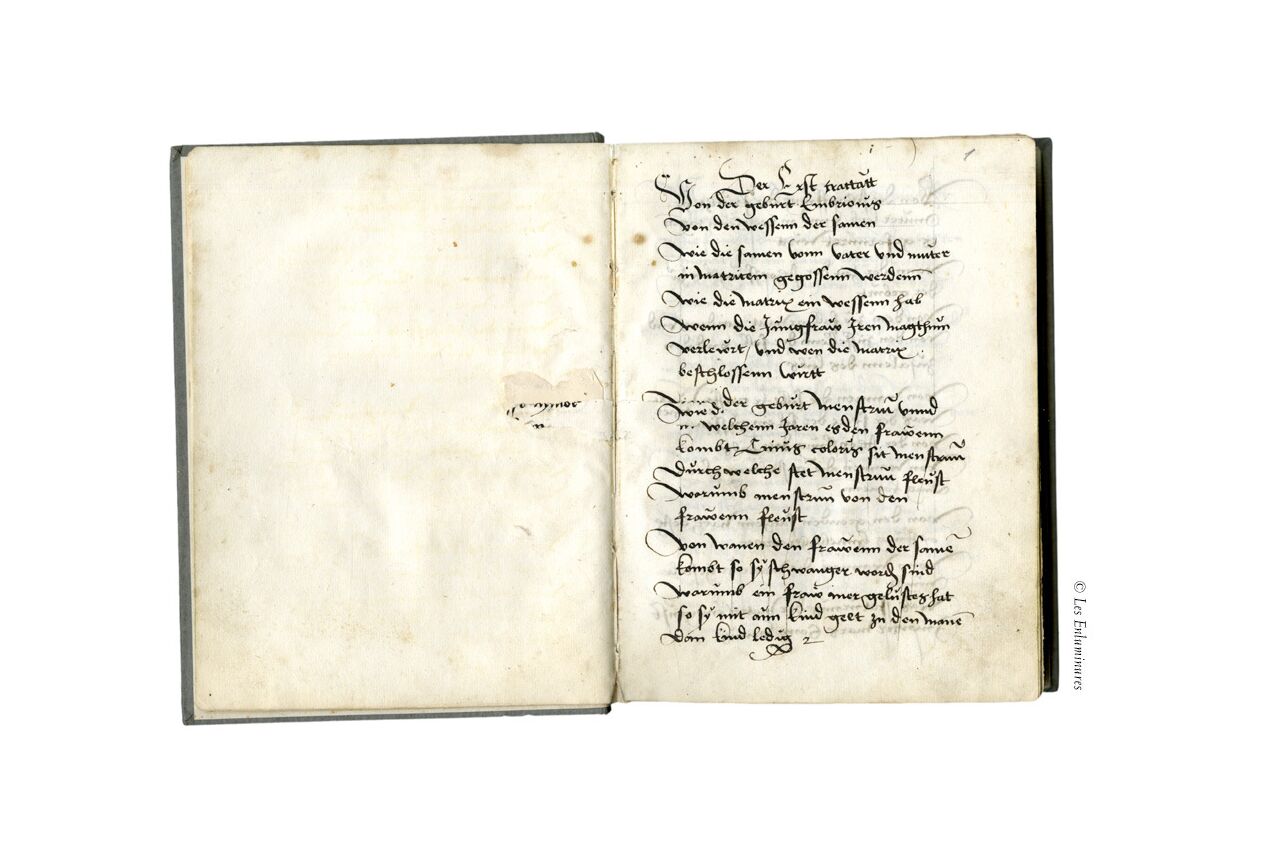 Der Erst trattatt
Von der geburt Embrionis
Von den wessenn der samen
Wie die samen vonn vater vnd muter
in matricem gegossenn werdenn
Wie die matrix ein wessenn hab
Wenn die Jungfraw Jren magthum
verleurt / vnd wen die matrix
beschlossenn wirtt
Wie der geburt menstruū vnnd
welchenn Jaren es den frawenn
kombt Cuius coloris sit menstruū
Durch welche stet menstruū fleust
Warumb menstruū von den
frawenn fleust
Von wanen den frawenn der samē
kombt so sy schwanger word sind
Warumb ein fraw mer gelustes hat
so sy mit aim kind geet zu den manē
dan kind ledig
1
© Les Enluminures